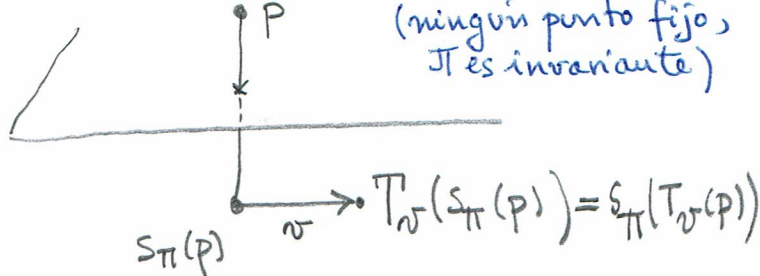 P
(ningún punto fijo,
π es invariante)
T_v(S_π(p)) = S_π(T_v(p))
v
S_π(p)